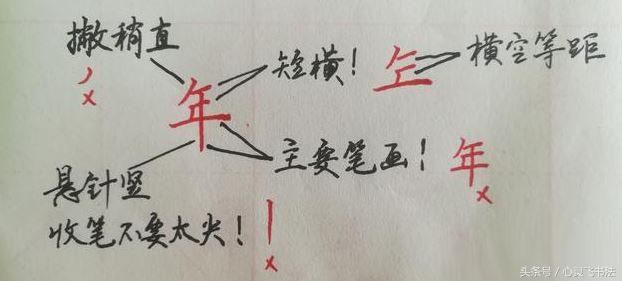 撇稍直
短横！
横空等距
年
主要笔画！
年
x
x
悬针竖
收笔不要太尖！
x
头条号/心灵飞书法